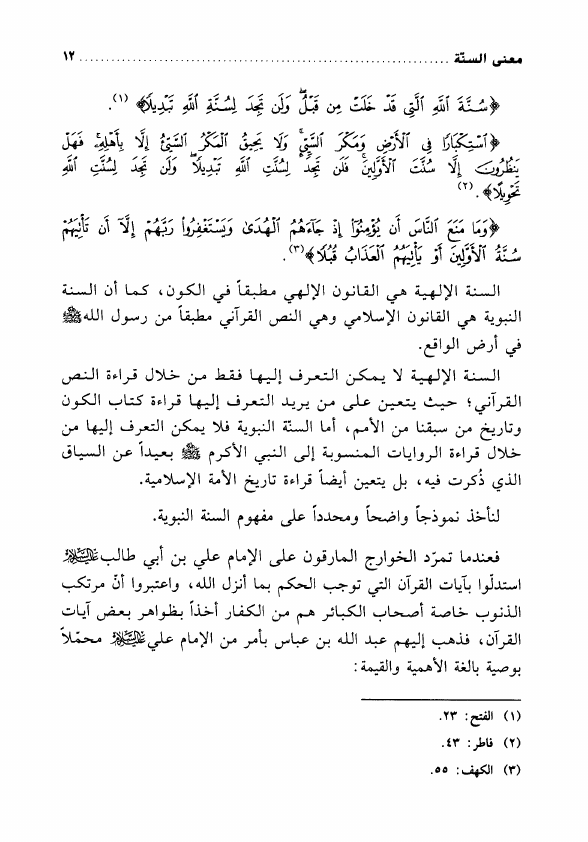 معنى السنّة ............................................................ ١٢
﴿سُنَّةَ ٱللَّهِ ٱلَّتِي قَدْ خَلَتْ مِن قَبْلُ ۖ وَلَن تَجِدَ لِسُنَّةِ ٱللَّهِ تَبْدِيلًا﴾ (١).
﴿ٱسْتِكْبَارًا فِي ٱلْأَرْضِ وَمَكْرَ ٱلسَّيِّئِ ۚ وَلَا يَحِيقُ ٱلْمَكْرُ ٱلسَّيِّئُ إِلَّا بِأَهْلِهِ ۚ فَهَلْ
يَنظُرُونَ إِلَّا سُنَّتَ ٱلْأَوَّلِينَ ۚ فَلَن تَجِدَ لِسُنَّتِ ٱللَّهِ تَبْدِيلًا ۖ وَلَن تَجِدَ لِسُنَّتِ ٱللَّهِ
تَحْوِيلًا﴾. (٢)
﴿وَمَا مَنَعَ ٱلنَّاسَ أَن يُؤْمِنُوٓا۟ إِذْ جَآءَهُمُ ٱلْهُدَىٰ وَيَسْتَغْفِرُوا۟ رَبَّهُمْ إِلَّآ أَن تَأْتِيَهُمْ
سُنَّةُ ٱلْأَوَّلِينَ أَوْ يَأْتِيَهُمُ ٱلْعَذَابُ قُبُلًا﴾ (٣).
السنة الإلهية هي القانون الإلهي مطبقاً في الكون، كما أن السنة
النبوية هي القانون الإسلامي وهي النص القرآني مطبقاً من رسول الله ﷺ
في أرض الواقع.
السنة الإلهية لا يمكن التعرف إليها فقط من خلال قراءة النص
القرآني؛ حيث يتعين على من يريد التعرف إليها قراءة كتاب الكون
وتاريخ من سبقنا من الأمم، أما السنّة النبوية فلا يمكن التعرف إليها من
خلال قراءة الروايات المنسوبة إلى النبي الأكرم ﷺ بعيداً عن السياق
الذي ذُكرت فيه، بل يتعين أيضاً قراءة تاريخ الأمة الإسلامية.
لنأخذ نموذجاً واضحاً ومحدداً على مفهوم السنة النبوية.
فعندما تمرّد الخوارج المارقون على الإمام علي بن أبي طالب عليه السلام
استدلّوا بآيات القرآن التي توجب الحكم بما أنزل الله، واعتبروا أنّ مرتكب
الذنوب خاصة أصحاب الكبائر هم من الكفار أخذاً بظواهر بعض آيات
القرآن، فذهب إليهم عبد الله بن عباس بأمر من الإمام علي عليه السلام محمّلاً
بوصية بالغة الأهمية والقيمة:
(١) الفتح: ٢٣.
(٢) فاطر: ٤٣.
(٣) الكهف: ٥٥.